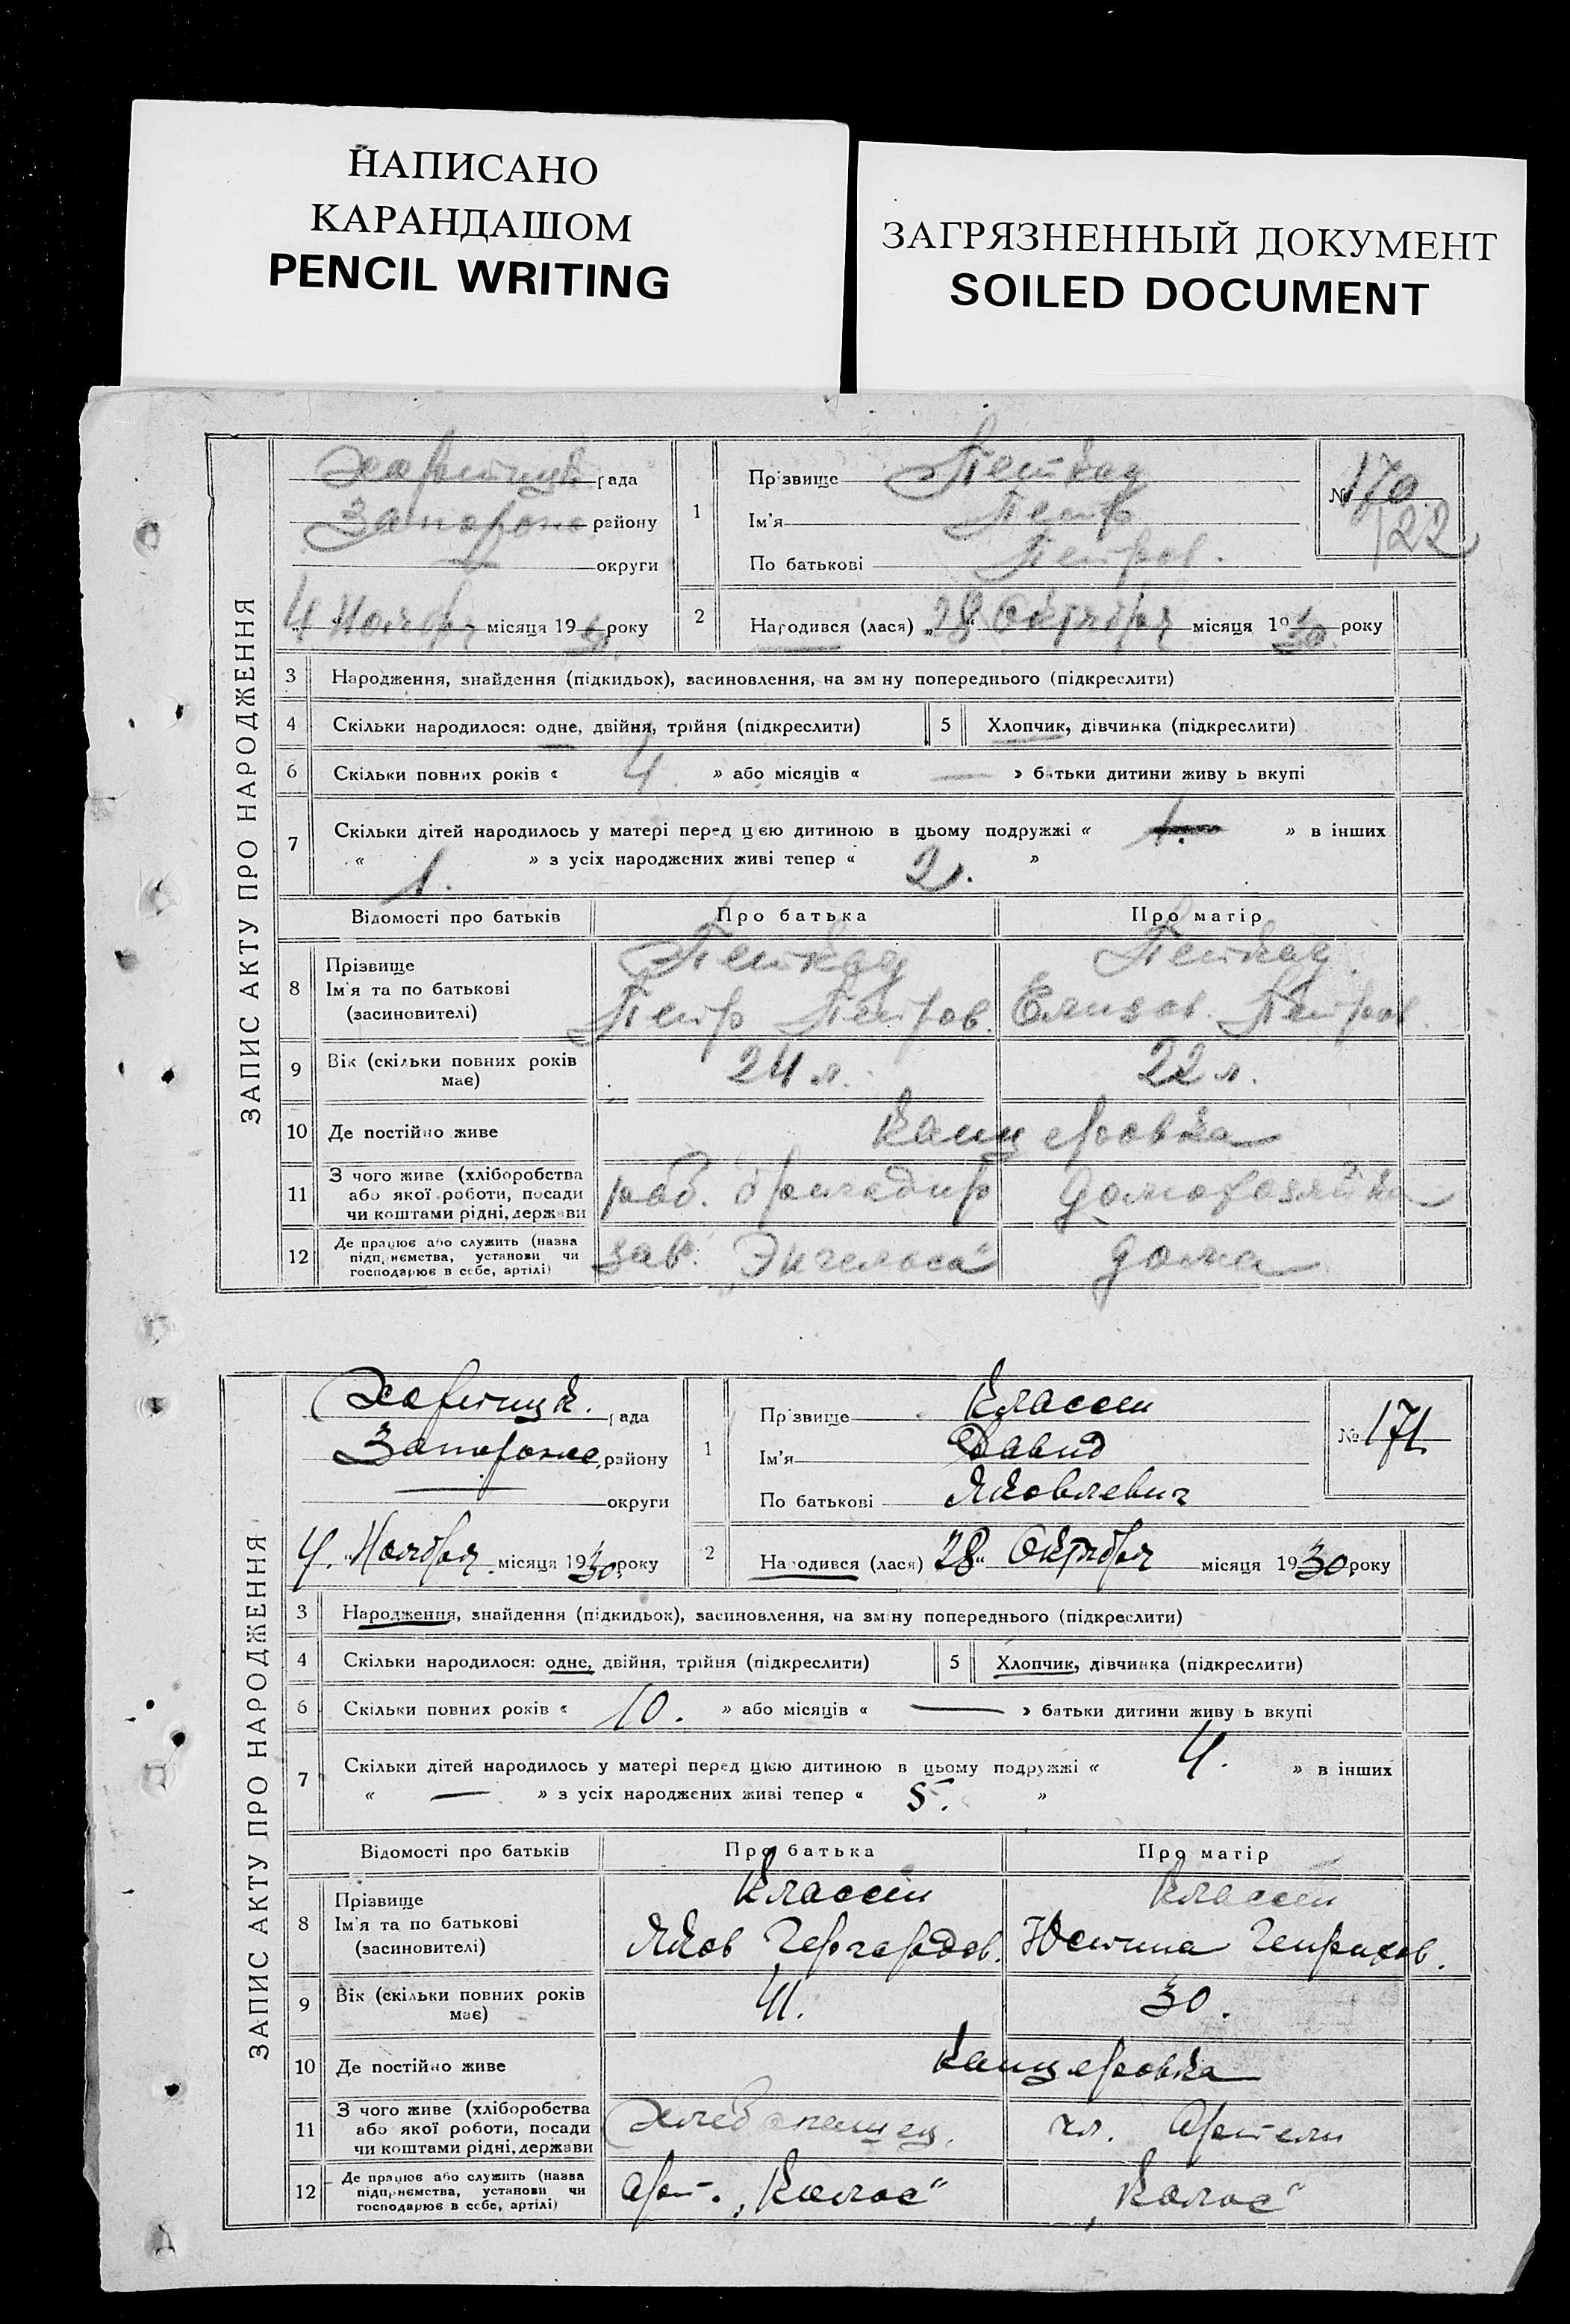 НАПИСАНО
КАРАНДАШОМ
PENCIL WRITING
ЗАГРЯЗНЕННЫЙ ДОКУМЕНТ
SOILED DOCUMENT
ЗАПИС АКТУ ПРО НАРОДЖЕННЯ
рада
Запорожс району
округи
4 Ноября місяця 1930 року
1
Прізвище
Ім'я Петр
По батькові Петров.
№ 170
122
2
Народився (лася) „28“ Октября місяця 1930 року
3 Народження, знайдення (підкидьок), засиновлення, на зміну попереднього (підкреслити)
4 Скільки народилося: одне, двійня, трійня (підкреслити) 5 Хлопчик, дівчинка (підкреслити)
6 Скільки повних років « 4. » або місяців « — » батьки дитини живуть вкупі
7 Скільки дітей народилось у матері перед цією дитиною в цьому подружжі « 1. » в інших
« 1. » з усіх народжених живі тепер « 2. »
Відомості про батьків Про батька Про матір
8 Прізвище
Ім'я та по батькові Петр Петров. Елизав. Петров.
(засиновителі)
9 Вік (скільки повних років має) 24 л. 22 л.
10 Де постійно живе Канцеровка
11 З чого живе (хліборобства або якої роботи, посади чи коштами рідні, держави раб. бригадир домохозяйка
12 Де працює або служить (назва підприємства, установи чи господарює в себе, артілі) зав. „Энгельса“ дома
ЗАПИС АКТУ ПРО НАРОДЖЕННЯ
рада
Запорожс. району
округи
4. Ноября. місяця 1930 року
1
Прізвище Классен
Ім'я Давид
По батькові Яковлевич
№ 171
2
Народився (лася) 28“ Октября місяця 1930 року
3 Народження, знайдення (підкидьок), засиновлення, на зміну попереднього (підкреслити)
4 Скільки народилося: одне, двійня, трійня (підкреслити) 5 Хлопчик, дівчинка (підкреслити)
6 Скільки повних років « 10. » або місяців « — » батьки дитини живуть вкупі
7 Скільки дітей народилось у матері перед цією дитиною в цьому подружжі « 4. » в інших
« — » з усіх народжених живі тепер « 5. »
Відомості про батьків Про батька Про матір
8 Прізвище Классен Классен
Ім'я та по батькові Яков Гергардов. Юстина Генрихов.
(засиновителі)
9 Вік (скільки повних років має) 41. 30.
10 Де постійно живе Канцеровка
11 З чого живе (хліборобства або якої роботи, посади чи коштами рідні, держави Хлебопашец. чл. Артели
12 Де працює або служить (назва підприємства, установи чи господарює в себе, артілі) Арт. „Колос“ „Колос“